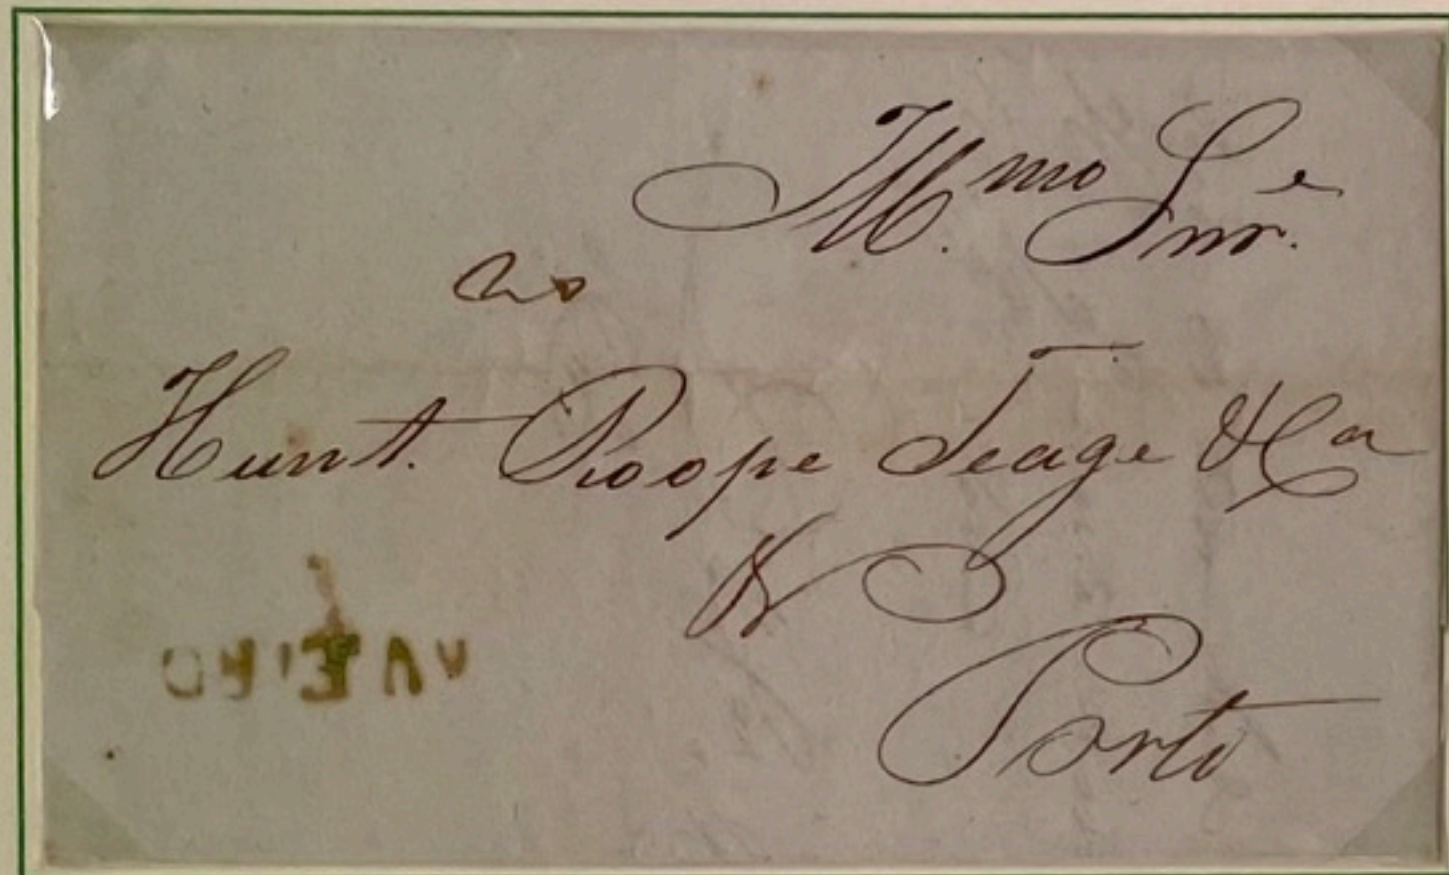 Illmo Snr.e
20
Hunt. Roope Teage & Ca
Porto
AVEIRO